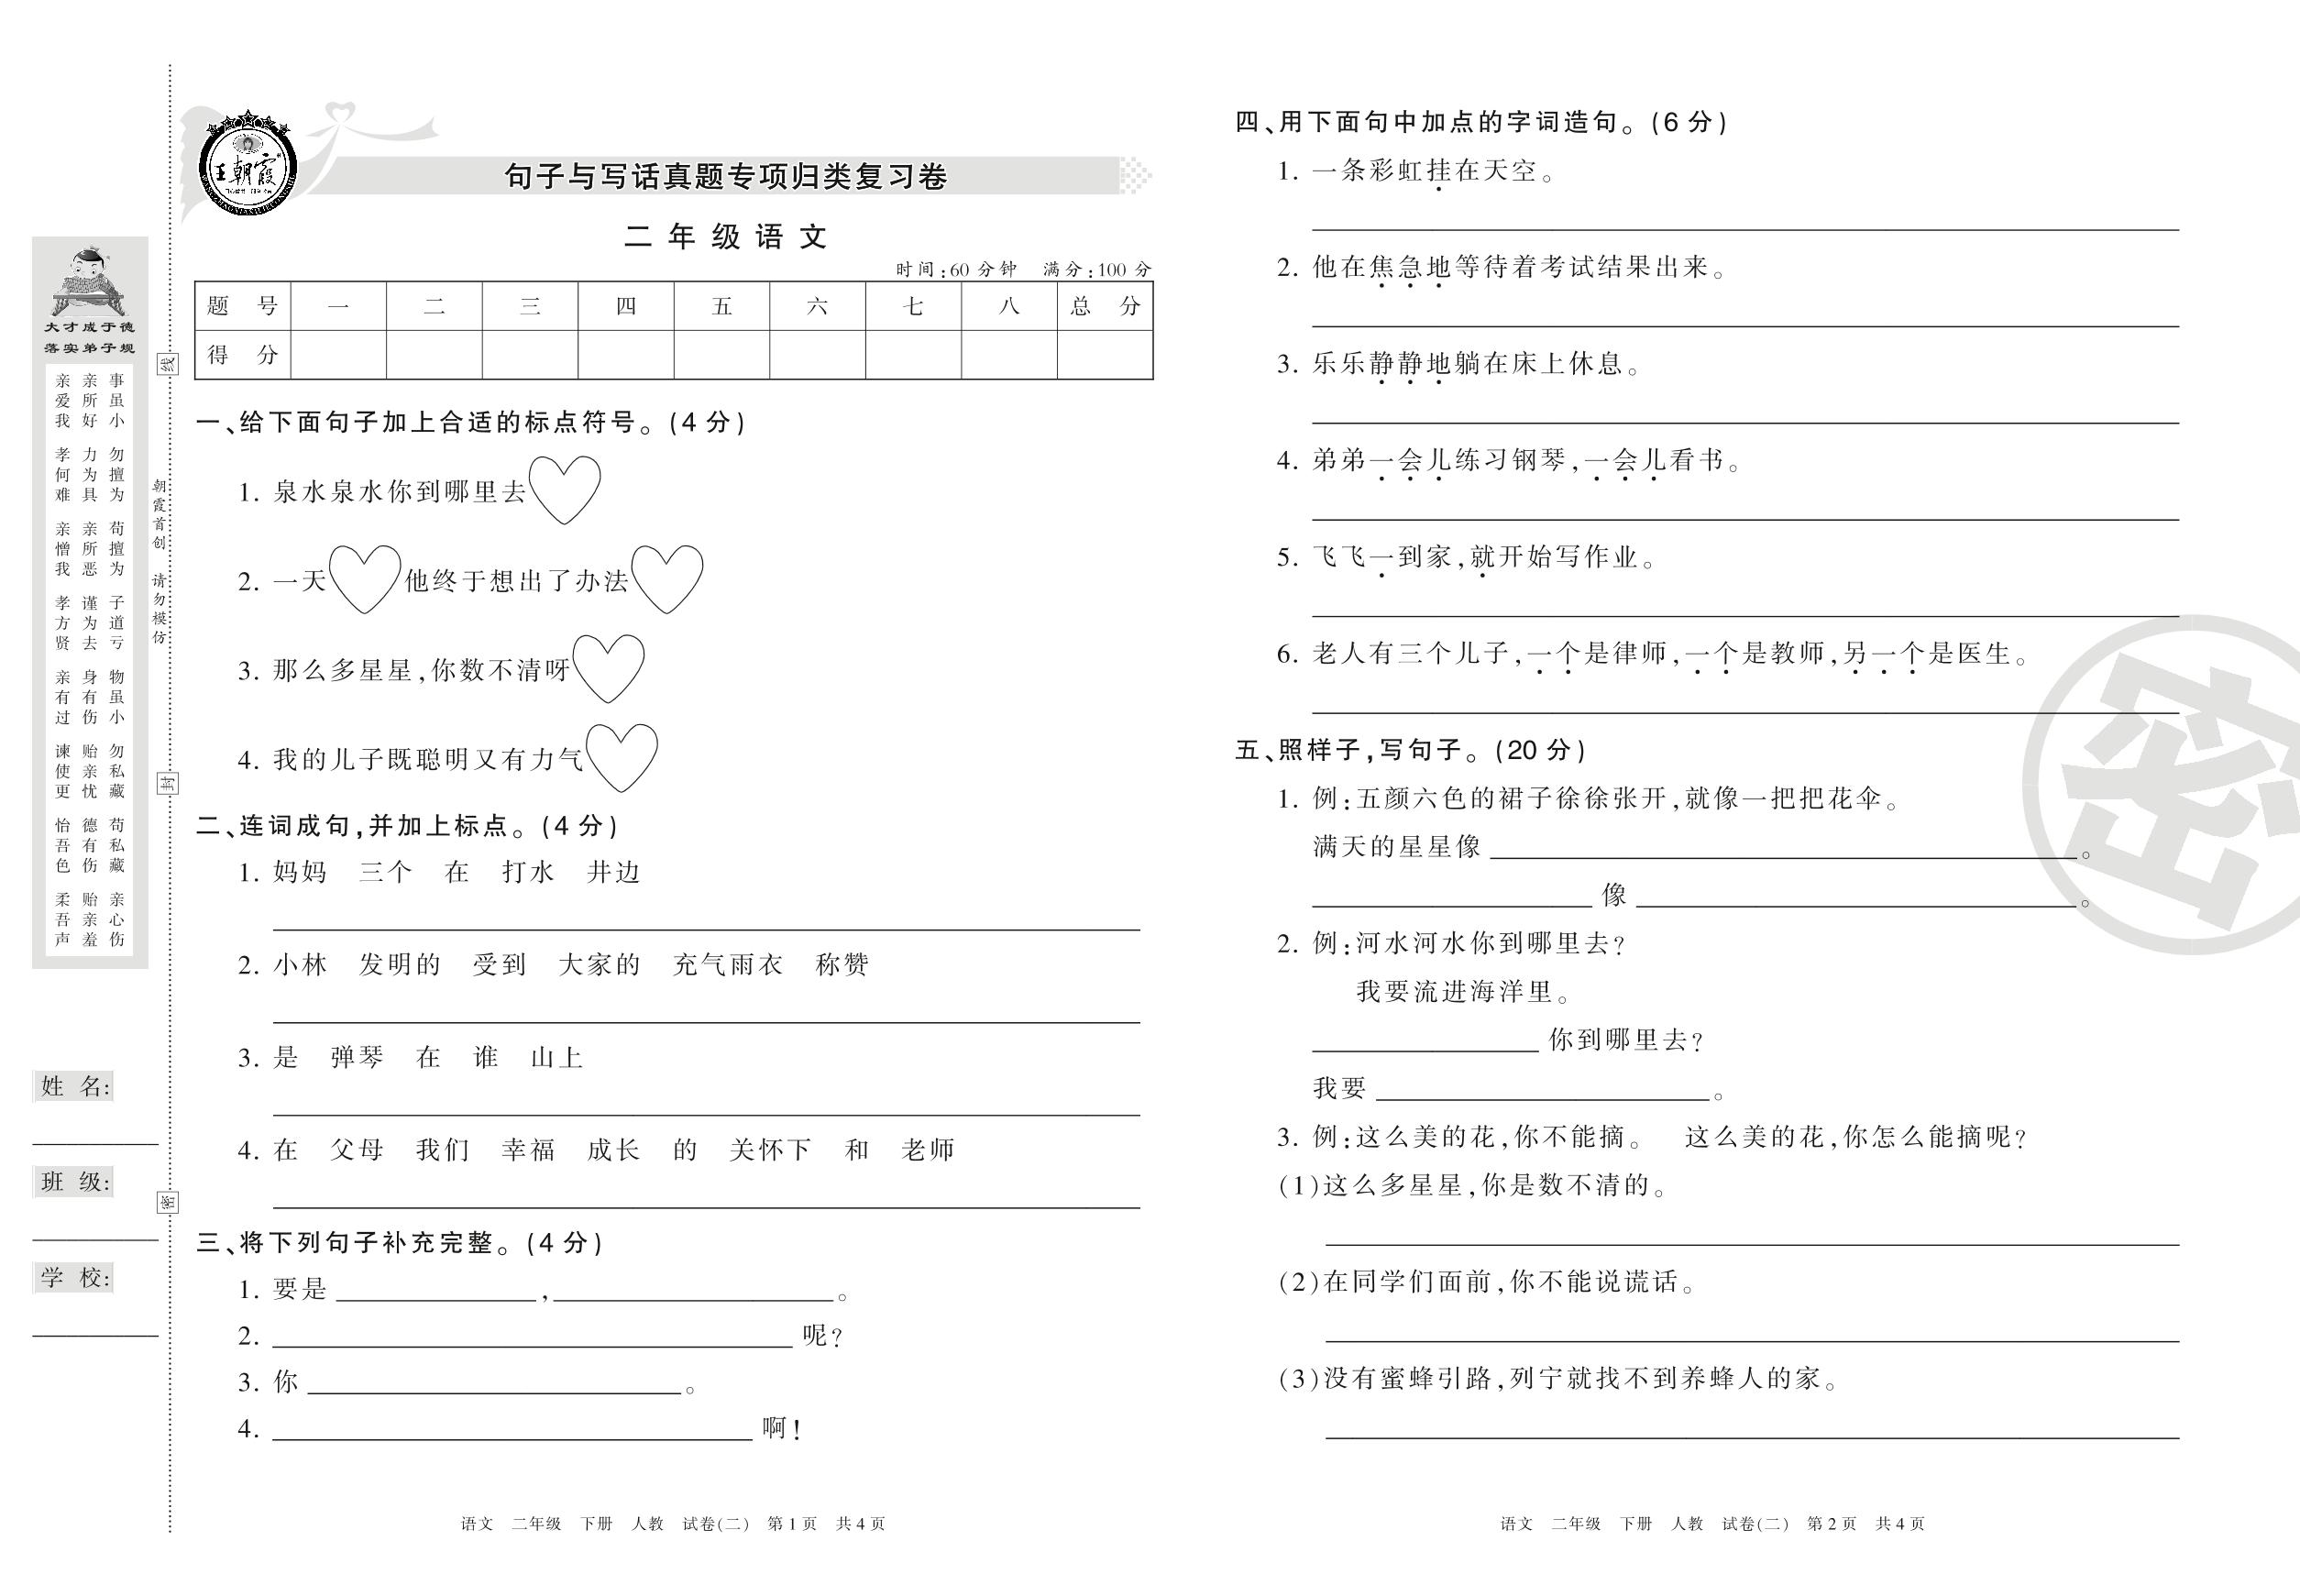 王朝霞
句子与写话真题专项归类复习卷
二年级语文
时间:60 分钟 满分:100 分
题 号 一 二 三 四 五 六 七 八 总 分
得 分
一、给下面句子加上合适的标点符号。(4 分)
1. 泉水泉水你到哪里去
2. 一天 他终于想出了办法
3. 那么多星星,你数不清呀
4. 我的儿子既聪明又有力气
二、连词成句,并加上标点。(4 分)
1. 妈妈 三个 在 打水 井边
2. 小林 发明的 受到 大家的 充气雨衣 称赞
3. 是 弹琴 在 谁 山上
4. 在 父母 我们 幸福 成长 的 关怀下 和 老师
三、将下列句子补充完整。(4 分)
1. 要是 , 。
2. 呢?
3. 你 。
4. 啊!
语文 二年级 下册 人教 试卷(二) 第 1 页 共 4 页
四、用下面句中加点的字词造句。(6 分)
1. 一条彩虹挂在天空。
2. 他在焦急地等待着考试结果出来。
3. 乐乐静静地躺在床上休息。
4. 弟弟一会儿练习钢琴,一会儿看书。
5. 飞飞一到家,就开始写作业。
6. 老人有三个儿子,一个是律师,一个是教师,另一个是医生。
五、照样子,写句子。(20 分)
1. 例:五颜六色的裙子徐徐张开,就像一把把花伞。
满天的星星像 。
像 。
2. 例:河水河水你到哪里去?
我要流进海洋里。
你到哪里去?
我要 。
3. 例:这么美的花,你不能摘。 这么美的花,你怎么能摘呢?
(1)这么多星星,你是数不清的。
(2)在同学们面前,你不能说谎话。
(3)没有蜜蜂引路,列宁就找不到养蜂人的家。
语文 二年级 下册 人教 试卷(二) 第 2 页 共 4 页
密
大才成于德
落实弟子规
事虽小 勿擅为 苟擅为 子道亏 物虽小 勿私藏 苟私藏 亲心伤
亲所好 力为具 亲所恶 谨为去 身有伤 贻亲忧 德有伤 贻亲羞
亲爱我 孝何难 亲憎我 孝方贤 亲有过 谏使更 怡吾色 柔吾声
朝霞首创 请勿模仿
线
封
密
姓 名:
班 级:
学 校: